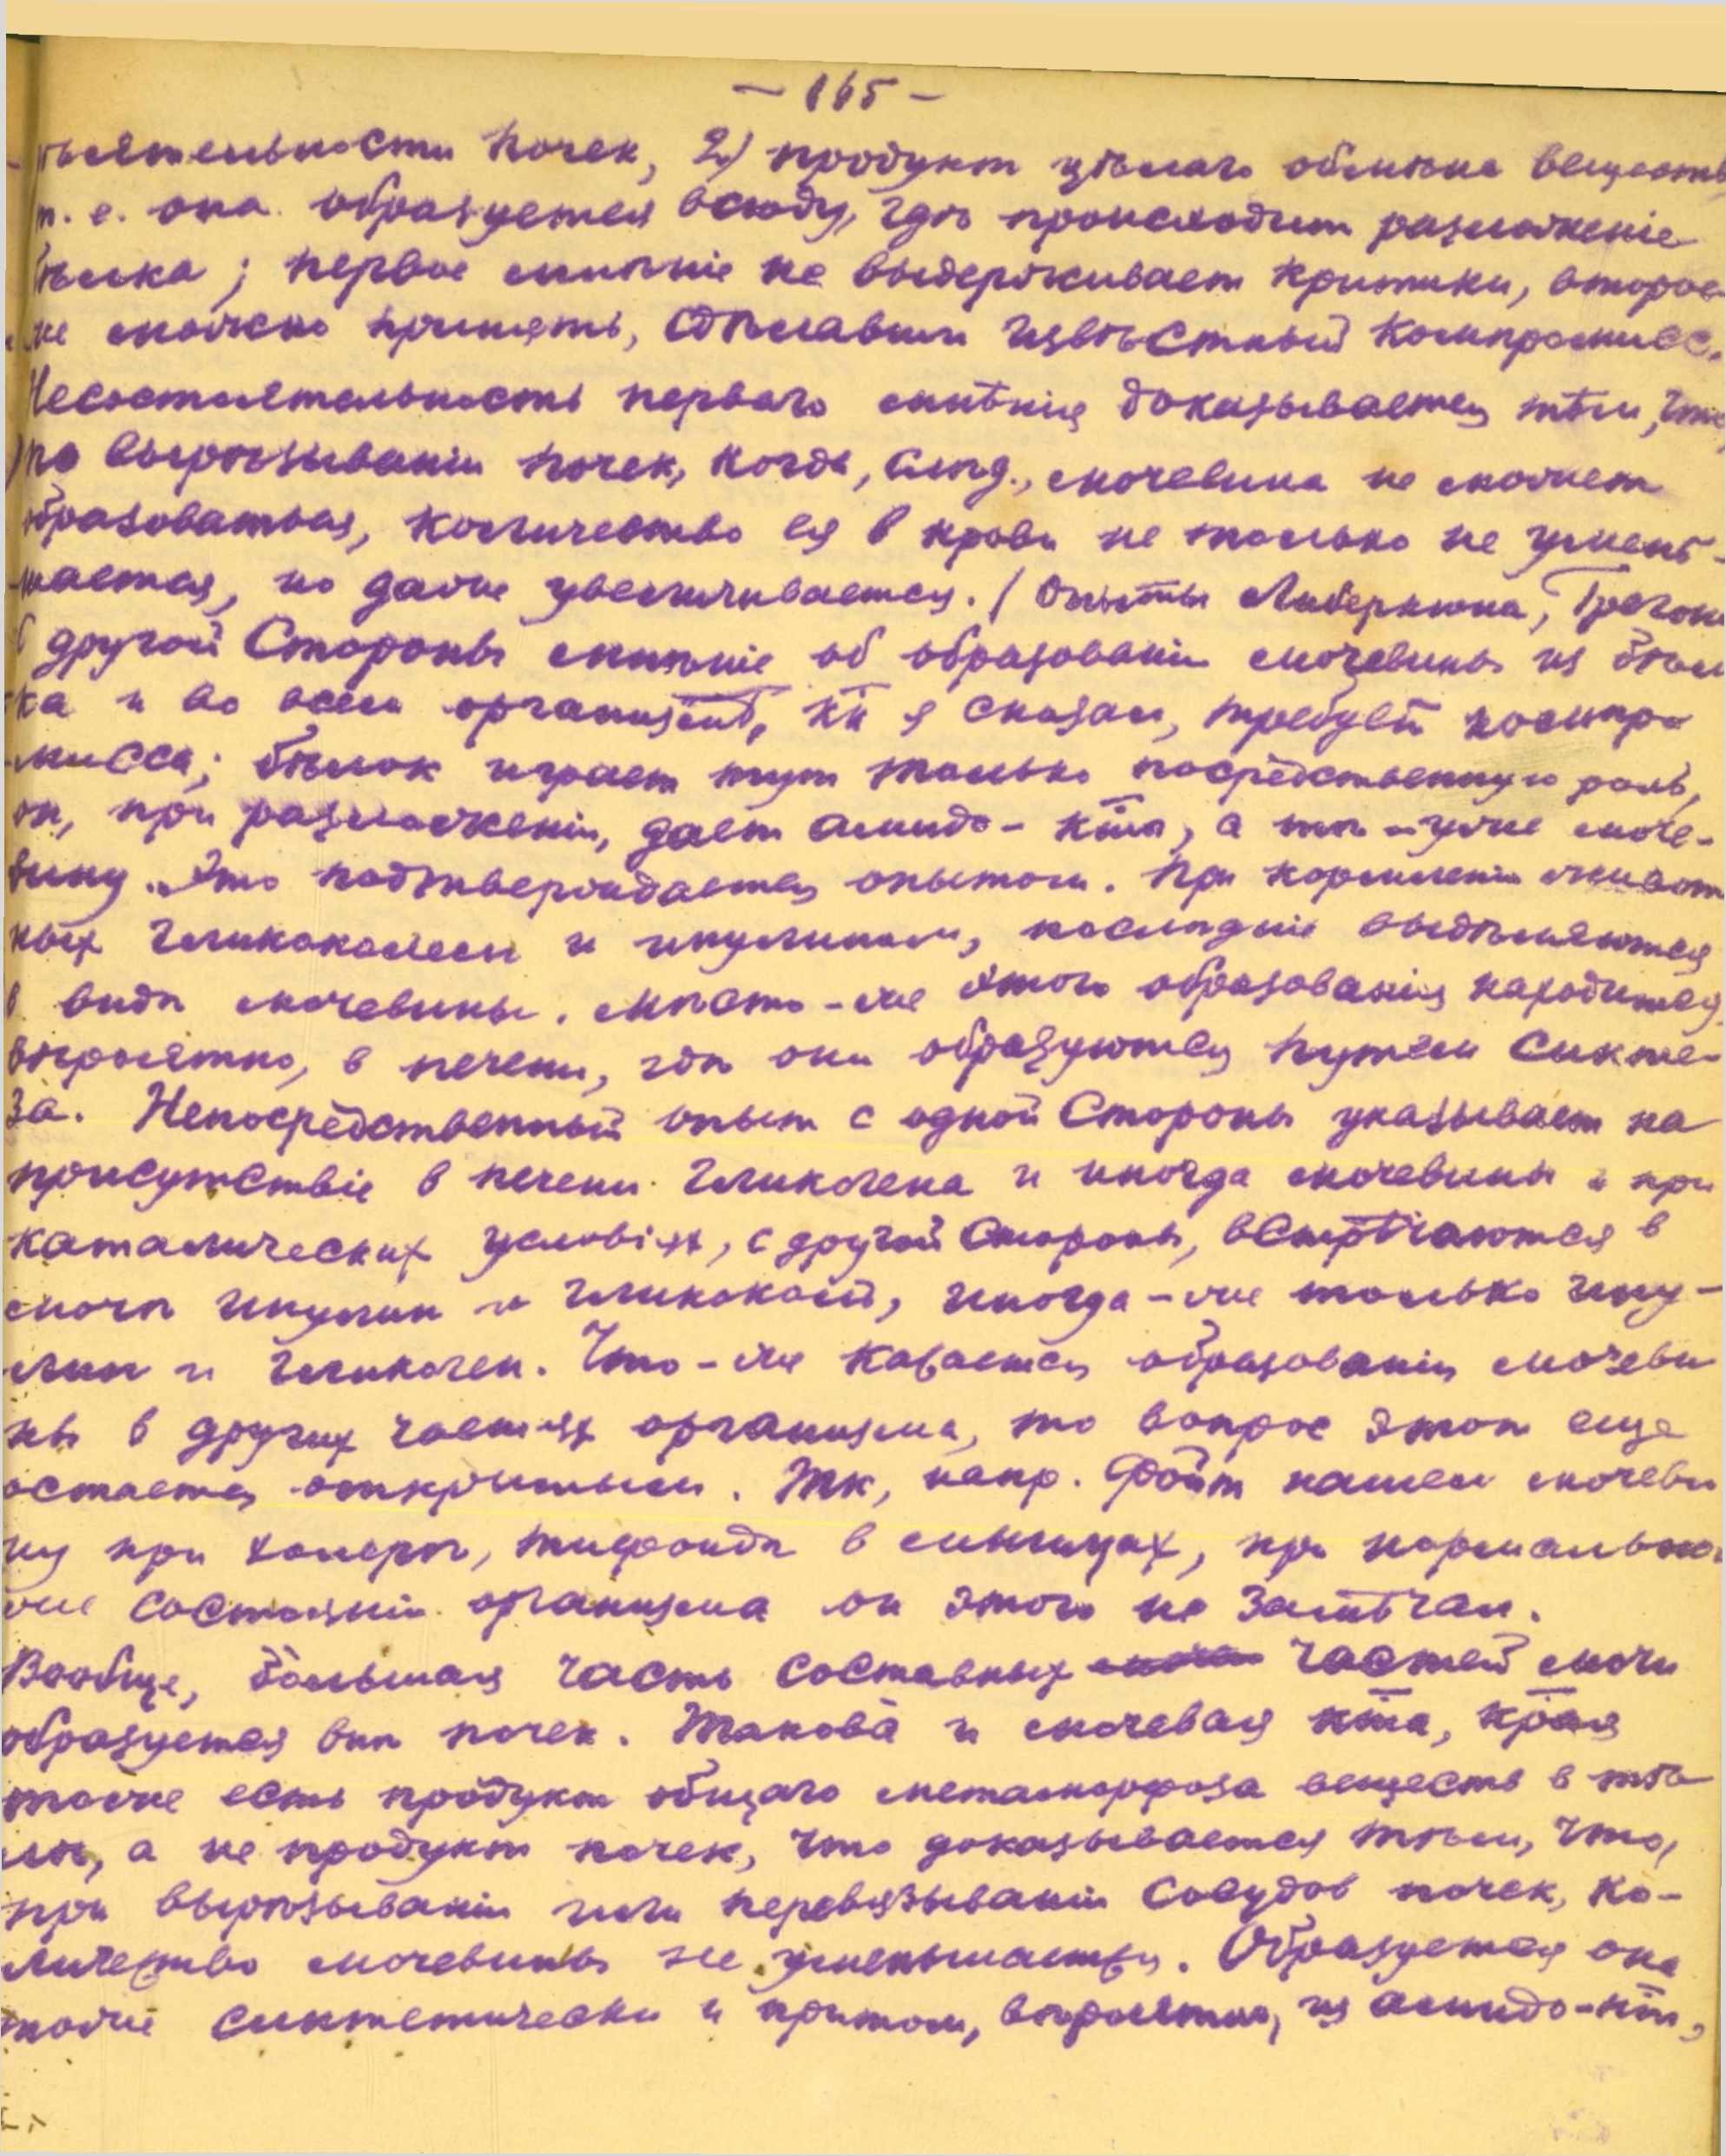 — 165 —
дѣятельности почек, 2) продукт цѣлаго обмѣна веществ
т. е. она образуется всюду, гдѣ происходит разложеніе
бѣлка; первое мнѣніе не выдерживает критики, второе
же можно принять, сдѣлавши извѣстный компромисс.
Несостоятельность перваго мнѣнія доказывается тѣм, что,
по вырѣзываніи почек, когда, слѣд., мочевина не может
образоваться, количество ея в крови не только не умень-
шается, но даже увеличивается. (Опыты Либеркюна, Грегон
С другой стороны мнѣніе об образованіи мочевины из бѣл
ка и во всем организмѣ, кк я сказал, требует компро
мисса; бѣлок играет тут только посредственную роль,
он, при разложеніи, дает амидо-кты, а тѣ – уже моче-
вину. Это подтверждается опытом. При кормленіи живот
ных гликоколем и инулином, послѣдніе выдѣляются
в видѣ мочевины. Мѣсто-же этого образованія находится,
вѣроятно, в печени, гдѣ они образуются путем синте-
за. Непосредственный опыт с одной стороны указывает на
присутствіе в печени гликогена и иногда мочевины и при
каталических условіях, с другой стороны, встрѣчаются в
мочѣ инулин и гликоколь, иногда-же только ину-
лин и гликоген. Что-же касается образованія мочеви
ны в других частях организма, то вопрос этот еще
остается открытым. Тк, напр. Фойт нашел мочеви
ну при холерѣ, тифоидѣ в мышцах, при нормальном
же состояніи организма он этого не замѣчал.
Вообще, большая часть составных частей мочи
образуется внѣ почек. Такова и мочевая кта, края
тоже есть продукт общаго метаморфоза веществ в тѣ
лѣ, а не продукт почек, что доказывается тѣм, что,
при вырѣзываніи или перевязываніи сосудов почек, ко-
личество мочевины не уменьшается. Образуется она
тоже синтетически и притом, вѣроятно, из амидо-кт,